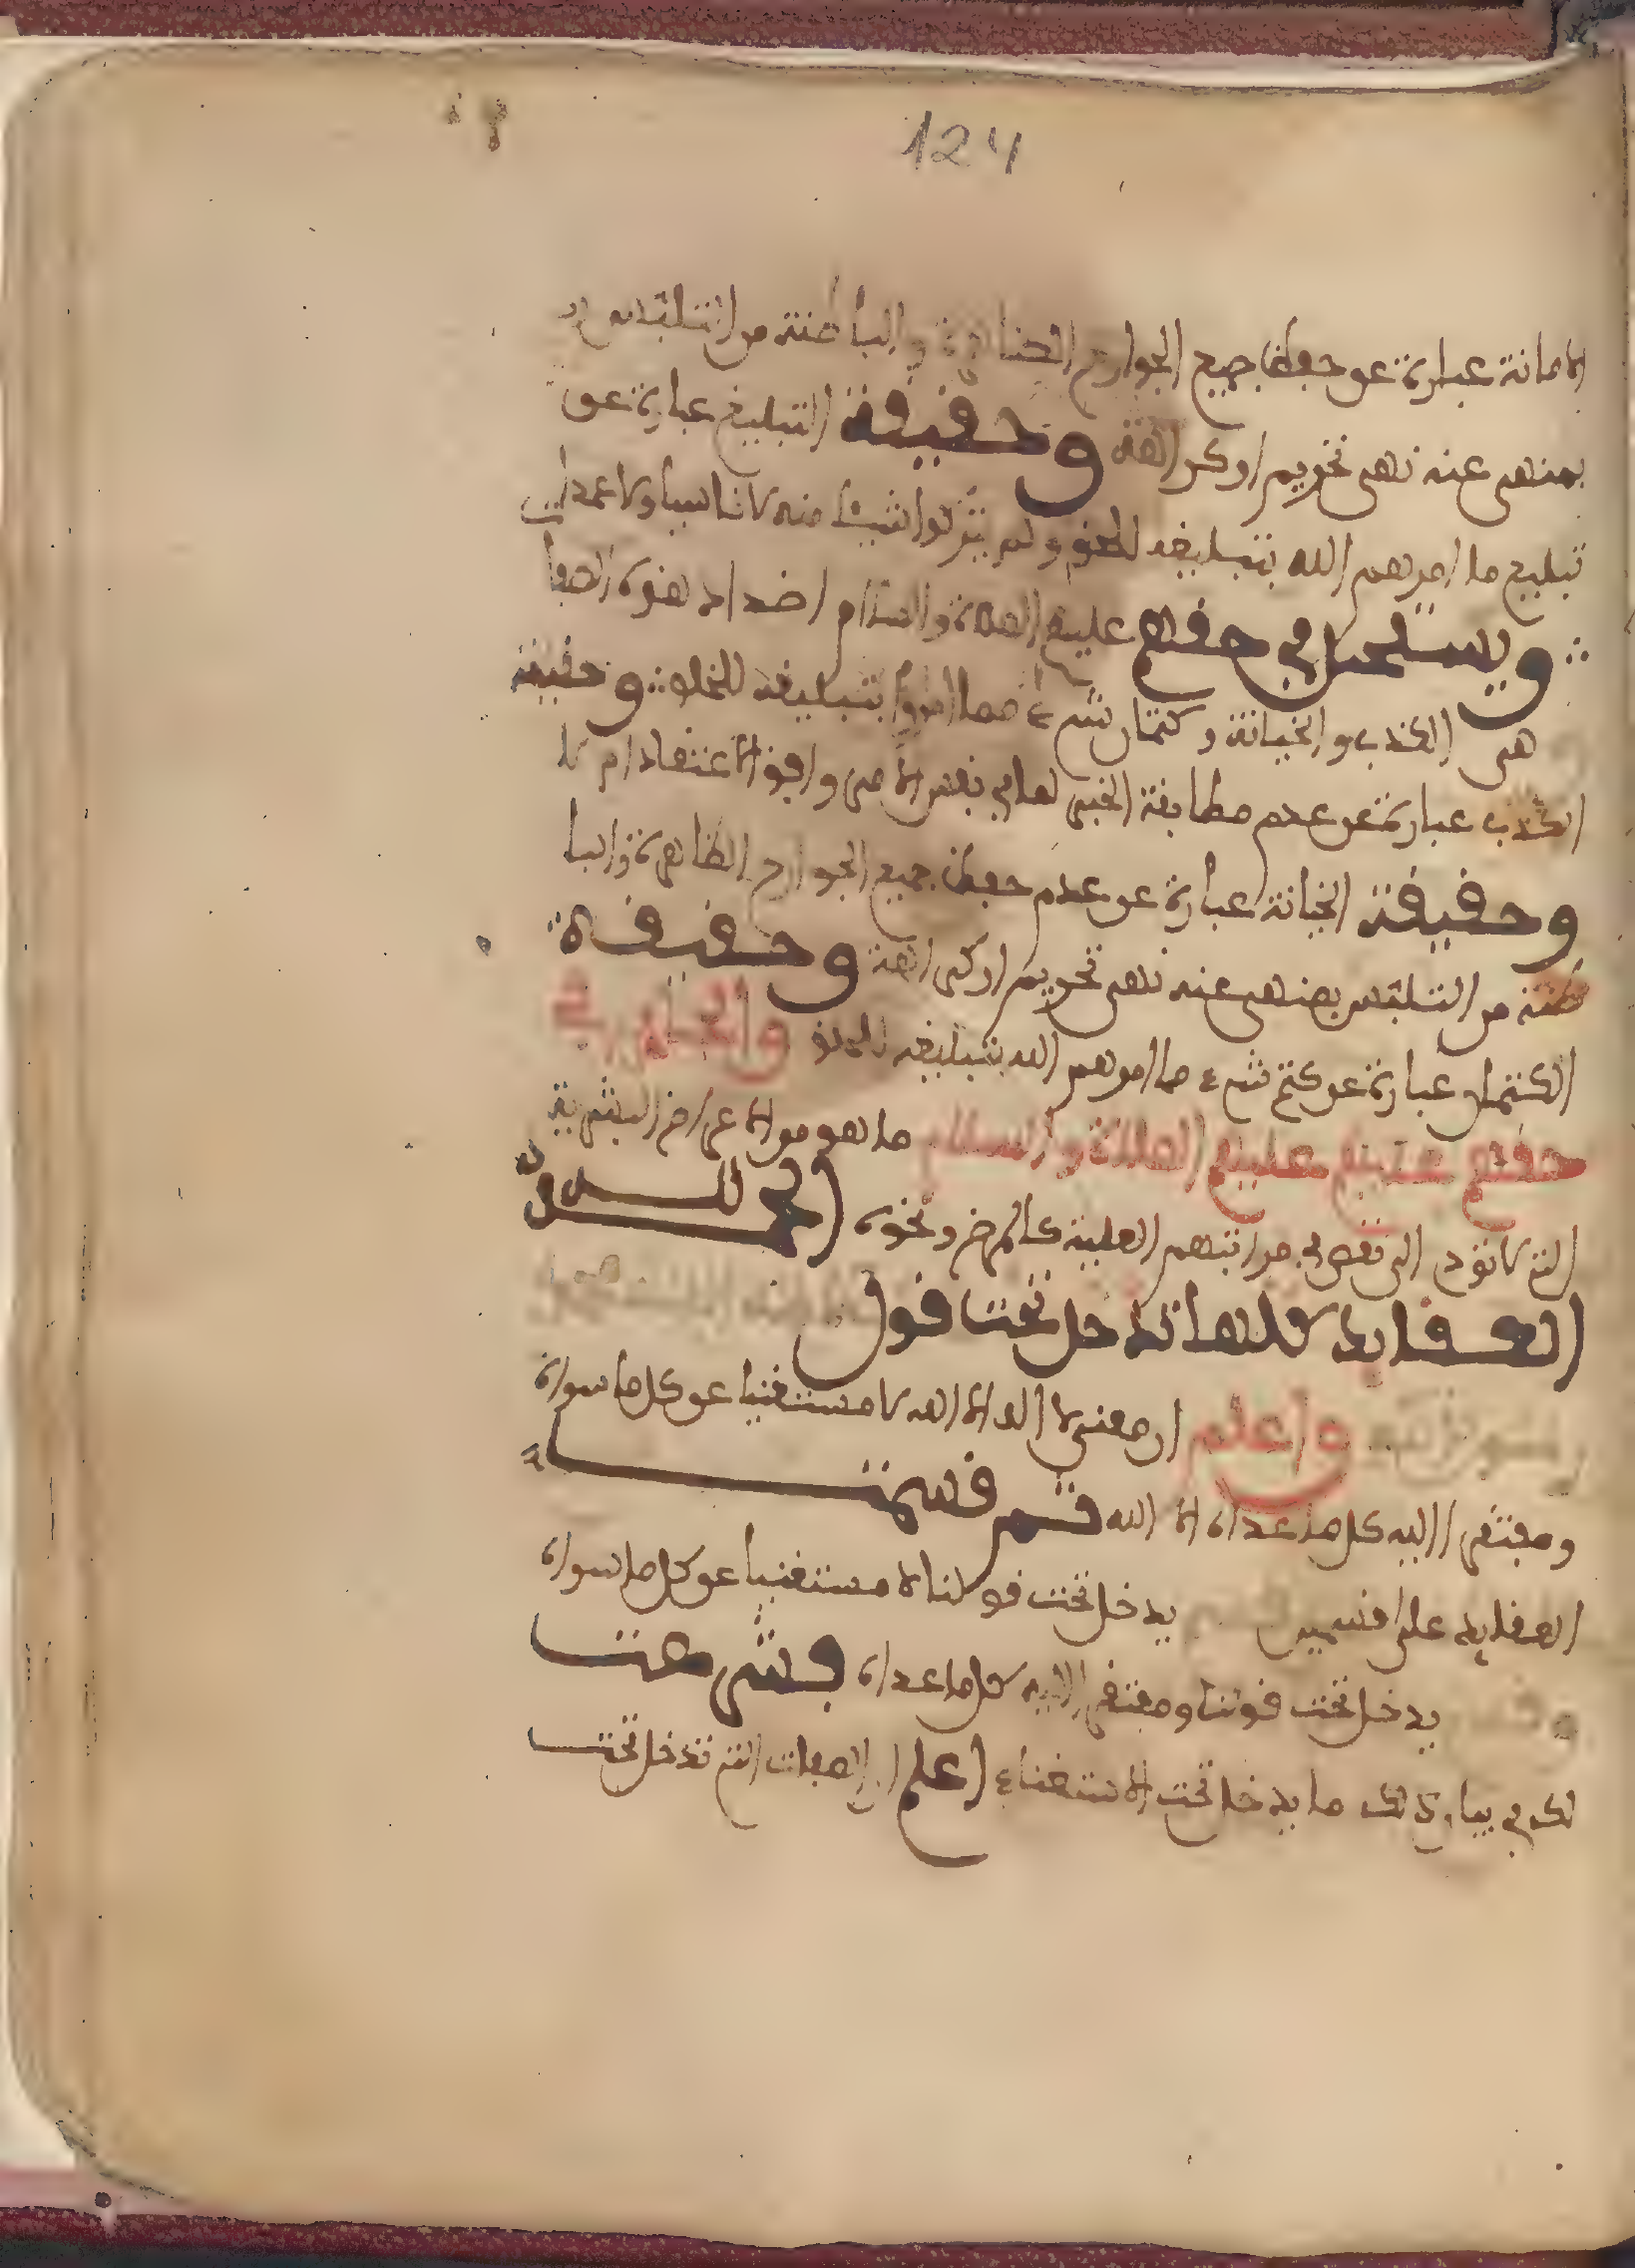 124
الامانة عبارة عن حفظ جميع الجوارح الظاهرة والباطنة من التلبس
بمنهى عنه نهى تحريم او كراهة وحقيقة التبليغ عبارة عن
تبليغ ما امرهم الله بتبليغه للخلق ولم يتركوا شيئا منه لا ناسيا ولا عمدا
ويستحيل في حقهم عليهم الصلاة والسلام اضداد هذه الصفات
هى الكذب والخيانة وكتمان شيء مما امروا بتبليغه للخلق وحقيقة
الكذب عبارة عن عدم مطابقة الخبر لما في نفس الامر وافق الاعتقاد ام لا
وحقيقة الخيانة عبارة عن عدم حفظ جميع الجوارح الظاهرة والبا
طنة من التلبس بمنهى عنه نهى تحريم او كراهة وحقيقة
الكتمان عبارة عن كتم شيء مما امرهم الله بتبليغه للخلق والجائز في
حقهم عليهم الصلاة والسلام ما هو من الاعراض البشرية
التي لا تؤدي الى نقص في مراتبهم العلية كالمرض ونحوه
العقايد كلها تدخل تحت قول
واعلم ان معنى لا اله الا الله لا مستغنيا عن كل ما سواه
ومفتقرا اليه كل ما عداه الا الله ثم قسمت
العقايد على قسمين يدخل تحت قولنا لا مستغنيا عن كل ما سواه
يدخل تحت قولنا ومفتقرا اليه كل ما عداه فشرعت
لك في بيان ذلك ما يدخل تحت الاستغناء اعلم ان الصفات التي تدخل تحت